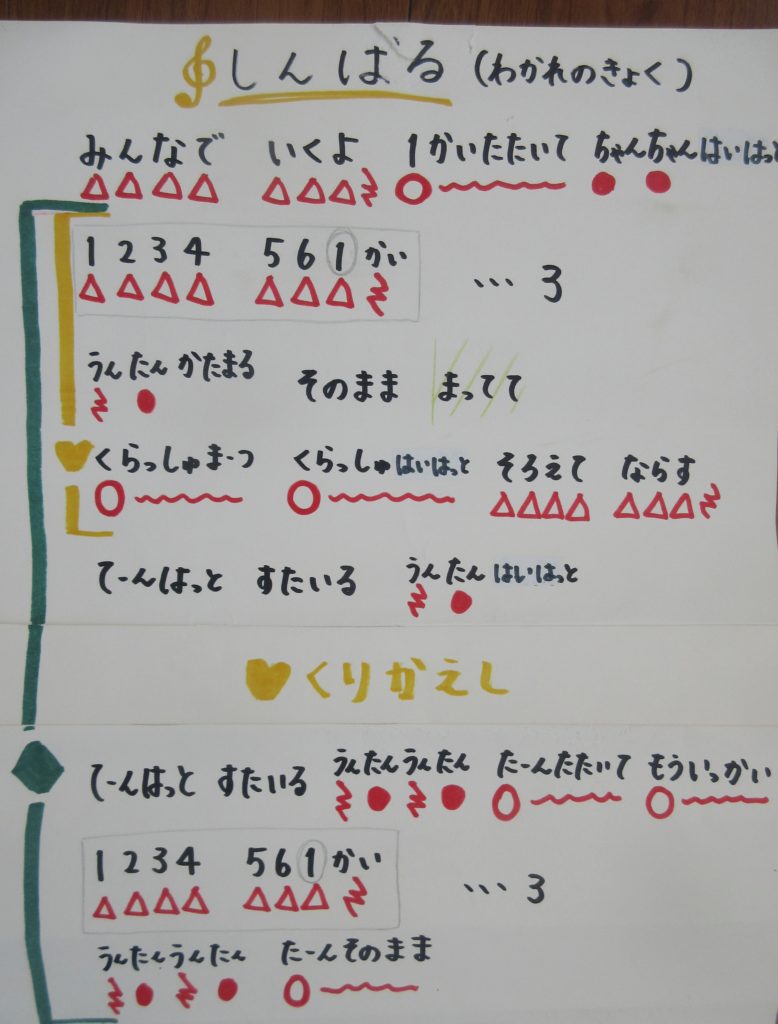 しんばる (わかれのきょく)
みんなで いくよ 1かいたたいて ちゃんちゃんはいはっと
1 2 3 4 5 6 1 かい … 3
うんたんかたまる そのまま まってて
くらっしゅまーつ くらっしゅはいはっと そろえて ならす
てーんはっと すたいる うんたんはいはっと
くりかえし
てーんはっと すたいる うんたんうんたん たーんたたいて もういっかい
1 2 3 4 5 6 1 かい … 3
うんたんうんたん たーんそのまま